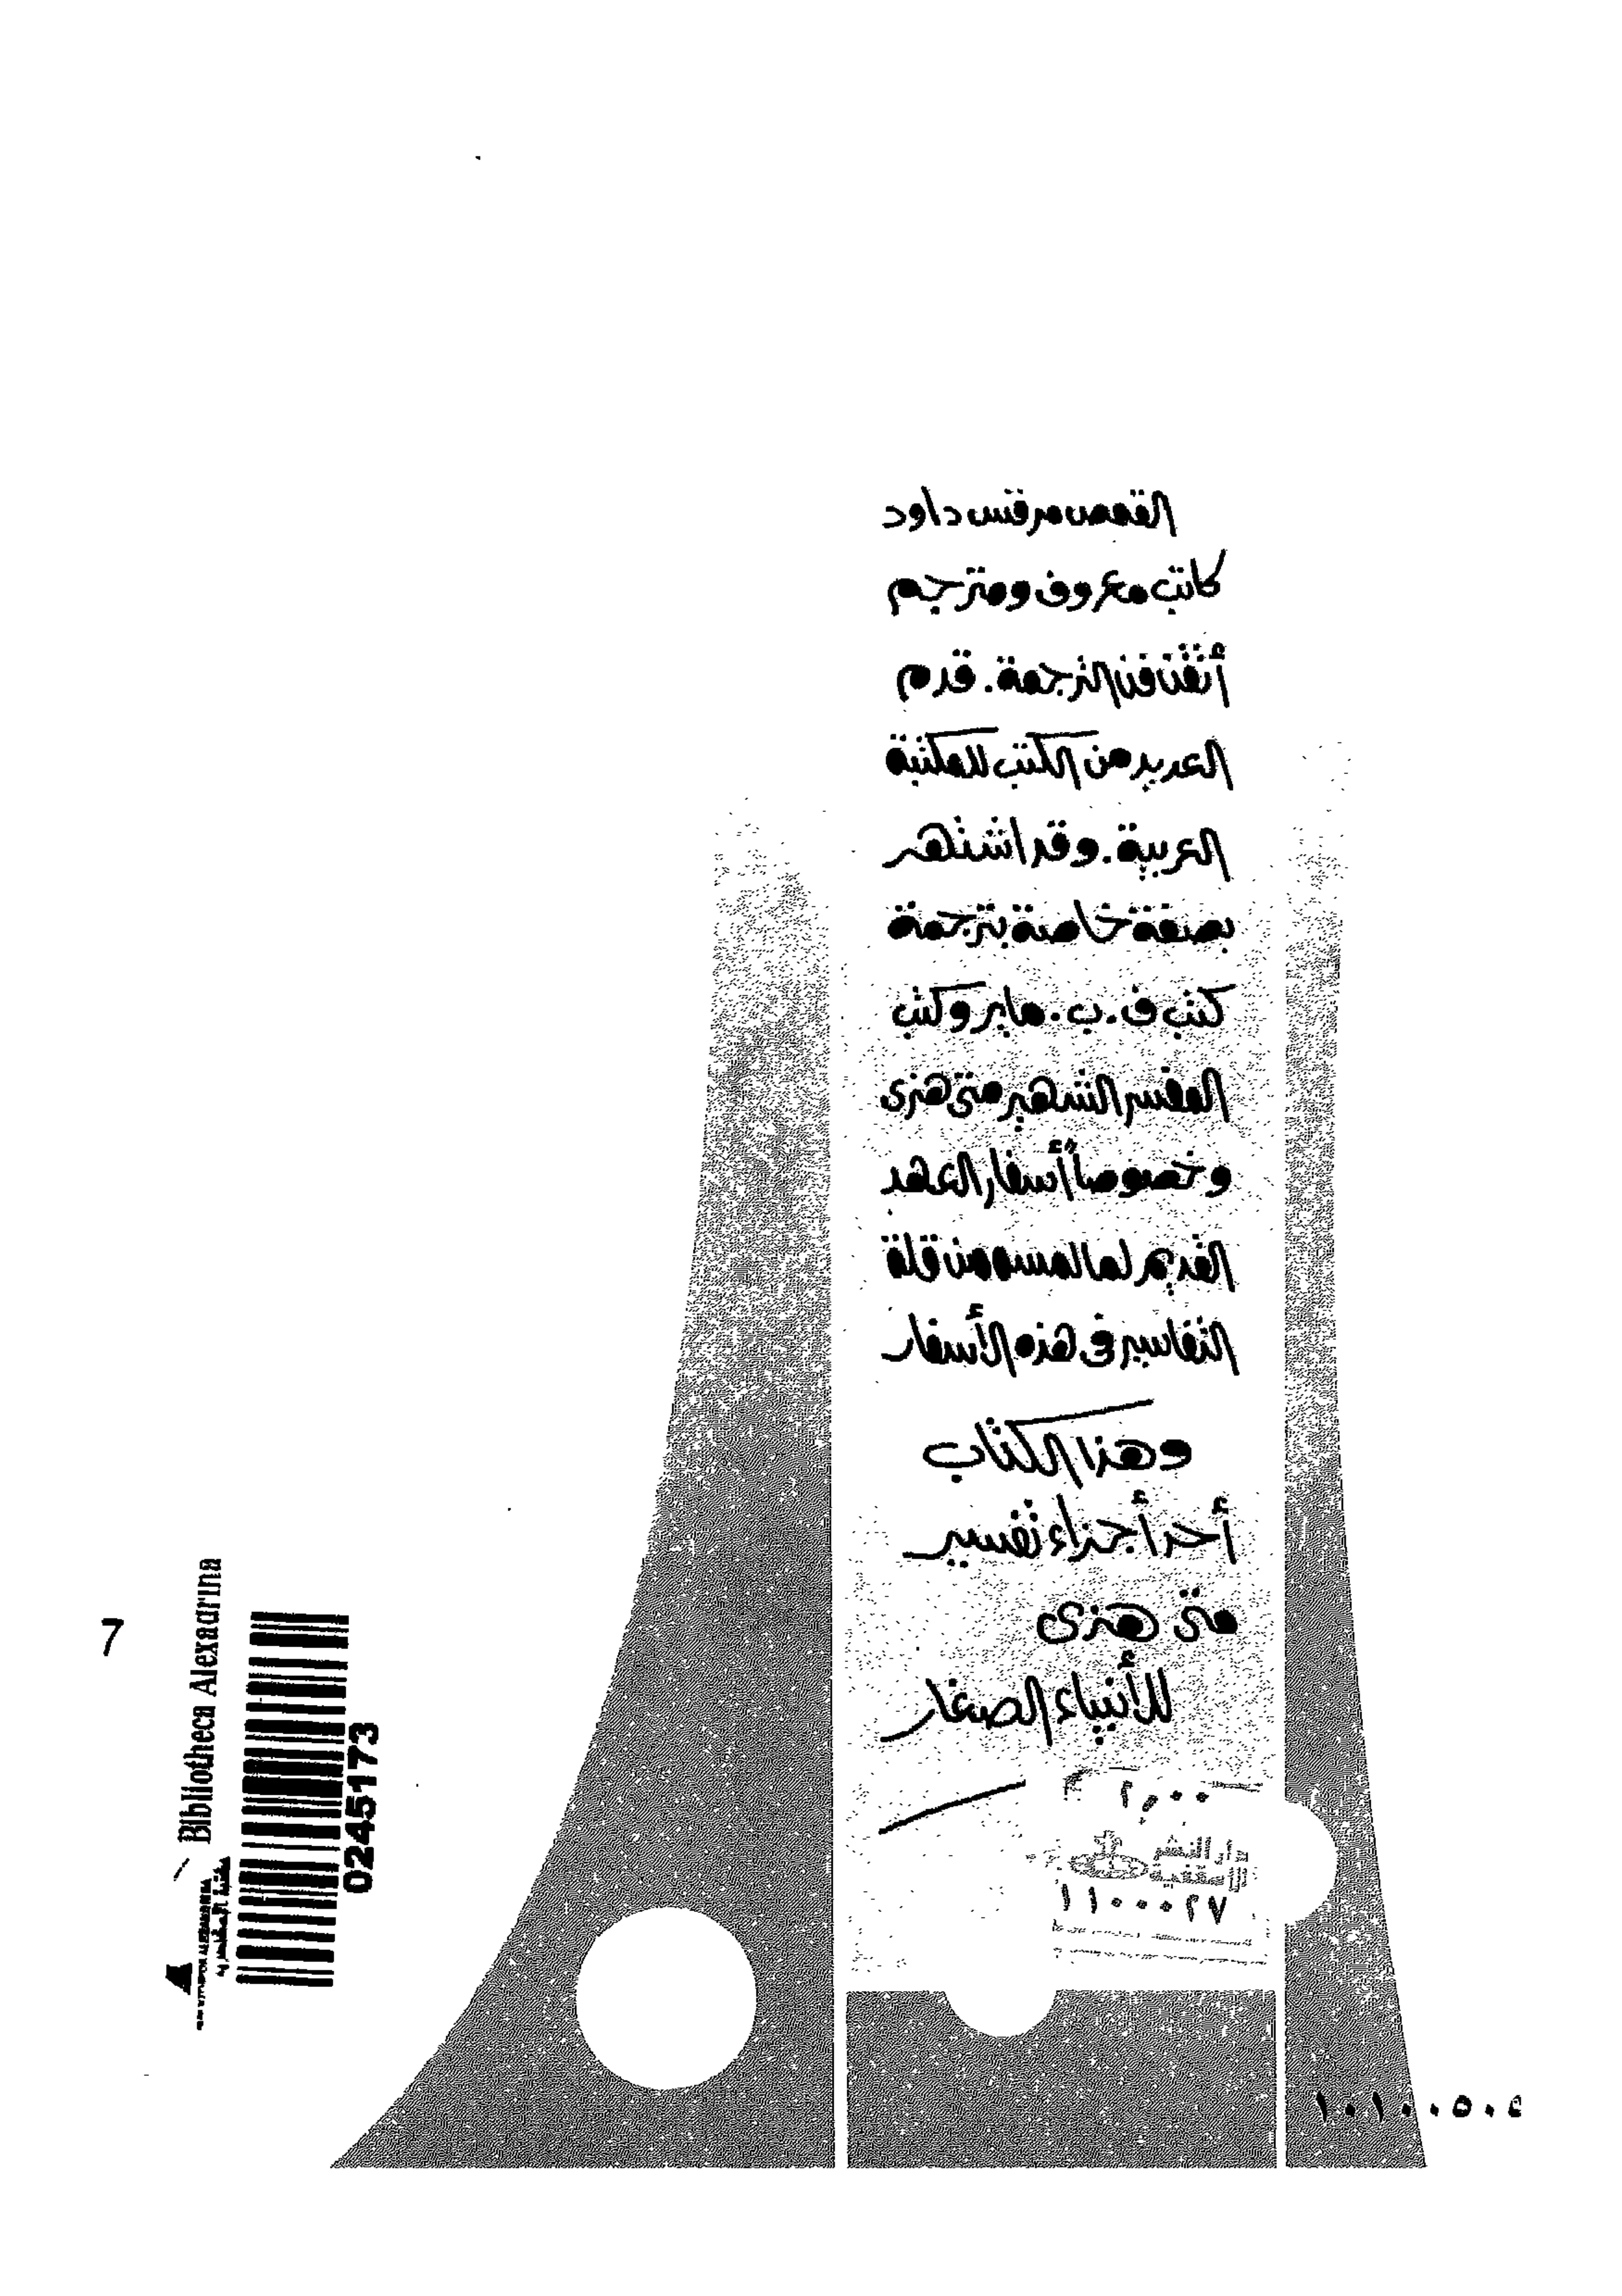 القمص مرقس داود
كاتب معروف ومترجم
أتقن فن الترجمة. قدم
العديد من الكتب للمكتبة
العربية. وقد اشتهر
بصفة خاصة بترجمة
كتب ف. ب. ماير وكتب
المفسر الشهير متى هنرى
وخصوصاً أسفار العهد
القديم لما لمسه من قلة
التفاسير فى هذه الأسفار
وهذا الكتاب
أحد أجزاء تفسير
متى هنرى
للأنبياء الصغار
٢,٠٠
دار النشر
الأسقفية
١١٠٠٠٢٧
7
Bibliotheca Alexandrina
0245173